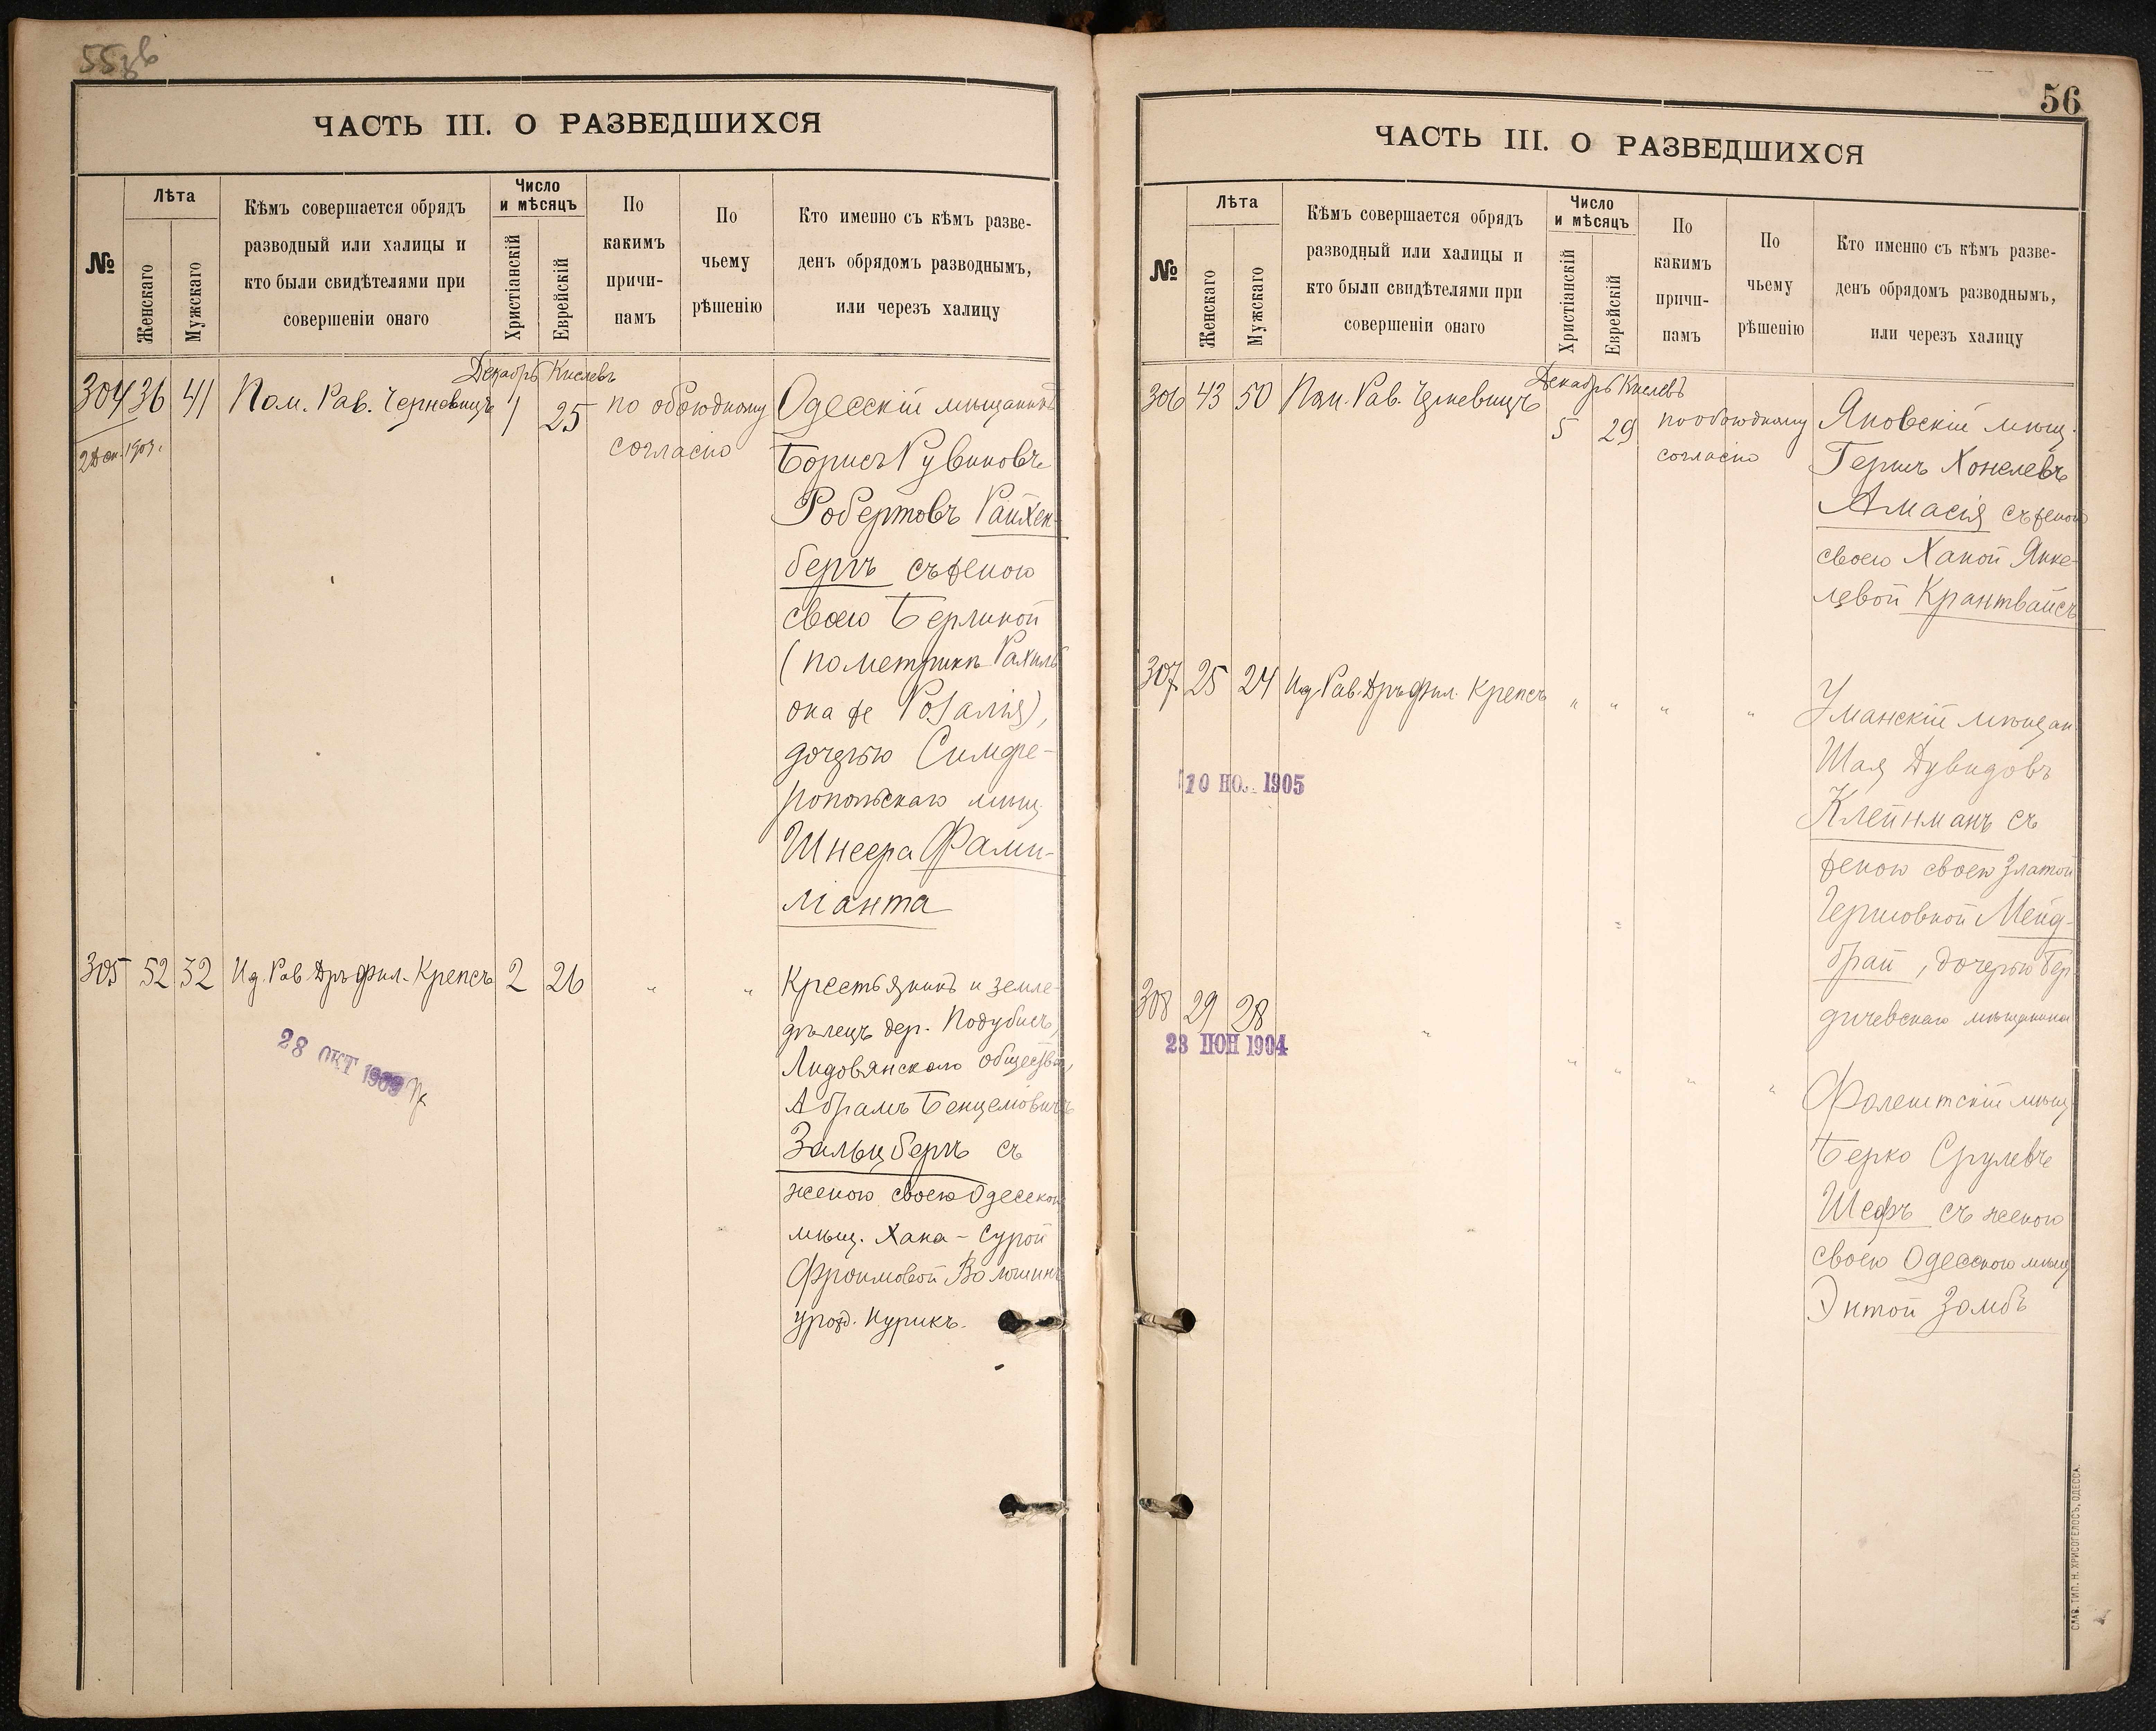 55об
ЧАСТЬ III. О РАЗВЕДШИХСЯ
№
Лѣта
Женскаго
Мужскаго
Кѣмъ совершается обрядъ
разводный или халицы и
кто были свидѣтелями при
совершеніи онаго
Число
и мѣсяцъ
Христіанскій
Еврейскій
По
какимъ
причи-
намъ
По
чьему
рѣшенію
Кто именно съ кѣмъ разве-
денъ обрядомъ разводнымъ,
или черезъ халицу
Декабрь Кислевъ
304 36 41 Пом. Рав. Черновицъ 1 25 по обоюдному
согласію
2 Дек. 1903 г.
Одесскій мѣщанинъ
Борисъ Рувиновъ
Робертовъ Райхен-
бергъ съ женою
своею Берлиной
(по метрикѣ Рахиль
она же Розалія),
дочерью Симфе-
ропольскаго мѣщ.
Шнеера Фами-
ліанта
305 52 32 Ид. Рав. Дръ фил. Крепсъ 2 26 " "
28 ОКТ 1909
Крестьянинъ и земле-
дѣлецъ дер. Подубисъ,
Лидовянскаго общества,
Абрамъ Бенцеловичъ
Зальцбергъ съ
женою своею Одесской
мѣщ. Хана-Сурой
Фроимовой Волошинъ
урожд. Курикъ.
56
ЧАСТЬ III. О РАЗВЕДШИХСЯ
№
Лѣта
Женскаго
Мужскаго
Кѣмъ совершается обрядъ
разводный или халицы и
кто были свидѣтелями при
совершеніи онаго
Число
и мѣсяцъ
Христіанскій
Еврейскій
По
какимъ
причи-
намъ
По
чьему
рѣшенію
Кто именно съ кѣмъ разве-
денъ обрядомъ разводнымъ,
или черезъ халицу
Декабрь Кислевъ
306 43 50 Пом. Рав. Черновицъ 5 29 по обоюдному
согласію
Яновскій мѣщ.
Гершъ Хонелевъ
Амасія съ женою
своею Ханой Янке-
левой Крантвайсъ
307 25 24 Ид. Рав. Дръ фил. Крепсъ " " " "
10 НО. 1905
Уманскій мѣщан.
Шая Дувидовъ
Клейнманъ съ
женою своею Златой
Гершовной Мейд-
брай, дочерью Бер-
дичевскаго мѣщанина
308 29 28 " " " " "
23 ІЮН 1904
Фалештскій мѣщ.
Берко Срулевъ
Шефъ съ женою
своею Одесскою мѣщ.
Энтой Замбъ
СЛАВ. ТИП. Н. ХРИСОГЕЛОСЪ, ОДЕССА.